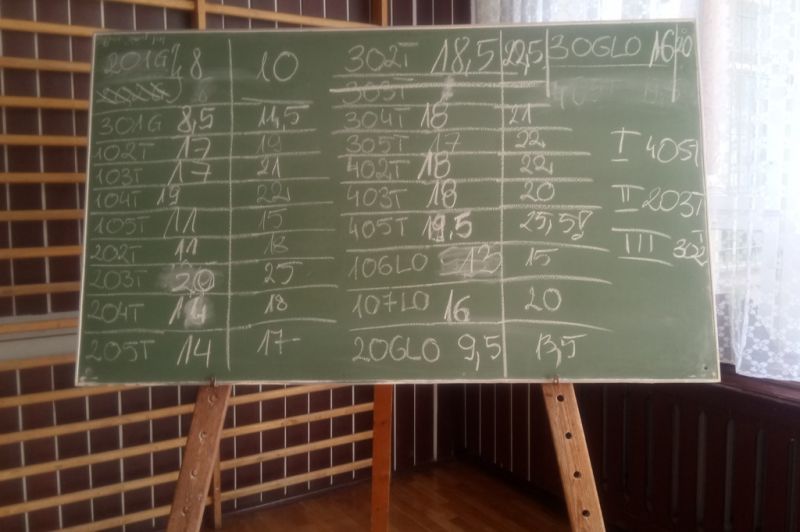 201G 8 10
301G 8,5 11,5
102T 17 19
103T 17 21
104T 19 22
105T 11 15
202T 11 13
203T 20 25
204T 14 18
205T 14 17-
302T 18,5 22,5
303T
304T 18 21
305T 17 22
402T 18 22
403T 18 20
405T 19,5 25,5
106LO 13 15
107LO 16 20
206LO 9,5 13,5
306LO 16 20
I 405T
II 203T
III 302T